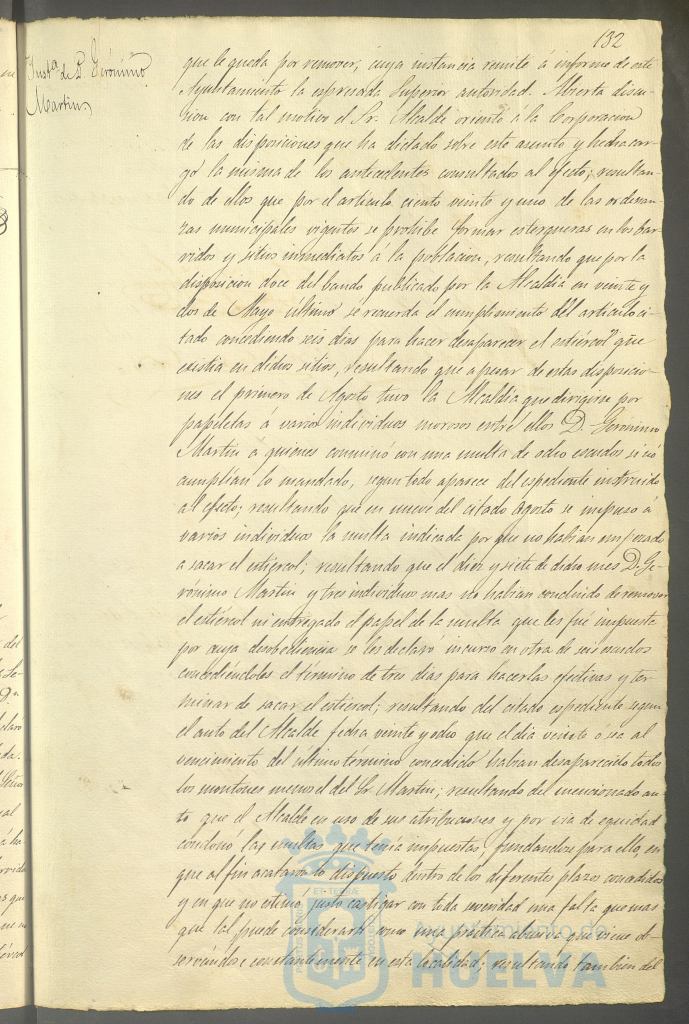 132
Inst.ª de D. Gerónimo
Martin
que le queda por remover, cuya instancia remite á informe de este
Ayuntamiento la espresada Superior autoridad. Abierta discu-
sion con tal motivo el Sr. Alcalde orientó á la Corporacion
de las disposiciones que ha dictado sobre este asunto y hecha car-
go la misma de los antecedentes consultados al efecto; resultan-
do de ellos que por el articulo ciento veinte y uno de las ordenan-
zas municipales vigentes se prohibe formar estergueras en los bar-
ridos y sitios inmediatos á la poblacion, resultando que por la
disposicion doce del bando publicado por la Alcaldia en veinte y
dos de Mayo último se recuerda el cumplimiento del articulo ci-
tado concediendo seis dias para hacer desaparecer el estiércol que
existia en dichos sitios, resultando que apesar de estas disposicio-
nes el primero de Agosto tuvo la Alcaldia que dirigirse por
papeletas á varios individuos morosos entre ellos D. Gerónimo
Martin a quienes conminó con una multa de ocho escudos si nó
cumplian lo mandado, segun todo aparece del espediente instruido
al efecto; resultando que en nueve del citado Agosto se impuso á
varios individuos la multa indicada por que no habian empezado
a sacar el estiercol; resultando que el diez y siete de dicho mes D. Ge-
rónimo Martin y tres individuos mas no habian concluido de remover
el estiércol ni entregado el papel de la multa que les fué impuesta
por cuya desobediencia se les declaró incurso en otra de seis escudos
concediendoles el término de tres dias para hacerlas efectivas y ter-
minar de sacar el estiercol; resultando del citado espediente segun
el auto del Alcalde fecha veinte y ocho que el dia veinte ó sea al
vencimiento del último término concedido habian desaparecido todos
los montones menos el del Sr. Martin; resultando del mencionado au-
to que el Alcalde en uso de sus atribuciones y por via de equidad
condonó las multas que tenia impuestas, fundandose para ello, en
que al fin acataron lo dispuesto dentro de los diferentes plazos concedidos
y en que no estimó justo castigar con toda severidad una falta que mas
que tal puede considerarse como una práctica abusiva que viene ob-
servandose constantemente en esta localidad; resultando tambien del
Ayuntamiento de
HUELVA